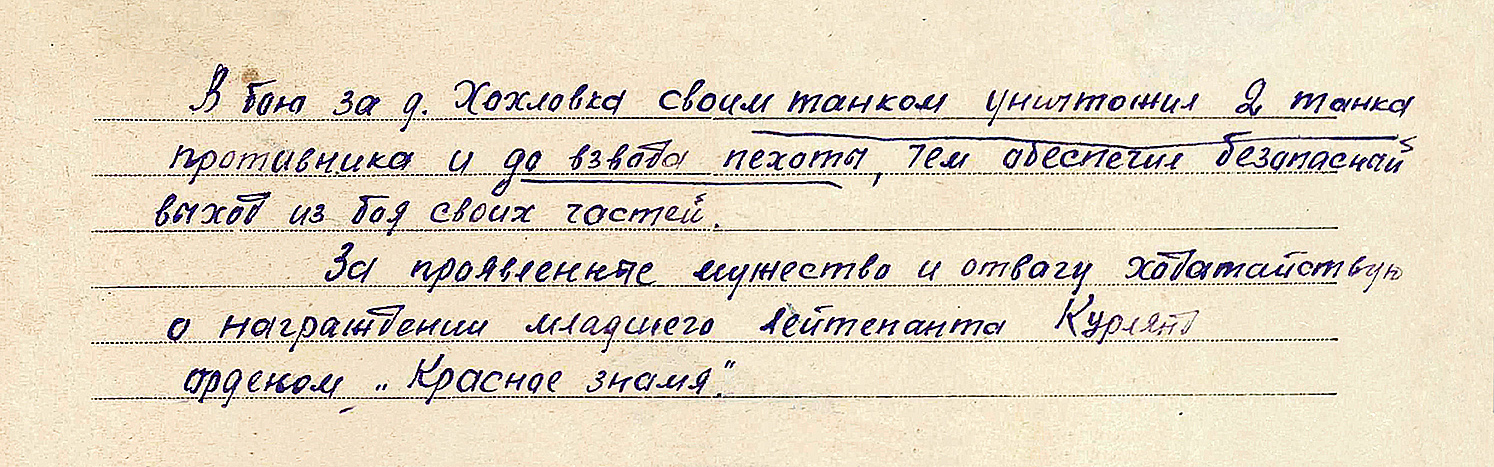 В бою за д. Хохловка своим танком уничтожил 2 танка
противника и до взвода пехоты, тем обеспечил безопасный
выход из боя своих частей.
За проявленные мужество и отвагу ходатайствую
о награждении младшего лейтенанта Курлянд
орденом „Красное знамя".